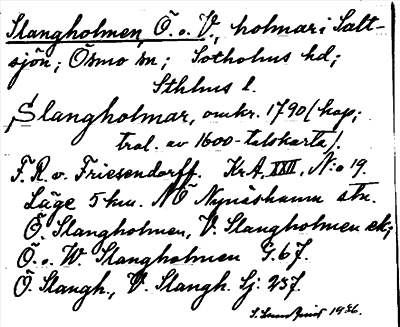 Slangholmen, Ö. o. V., holmar i Salt-
sjön; Ösmo sn; Sotholms hd;
Sthlms l.
Slangholmar, omkr. 1790 (kop;
tral. av 1600-talskarta).
F. R. v. Friesendorff. KrA. XXII, N:o 19.
Läge 5 km. NÖ Nynäshamn stn.
Ö. Slangholmen, V. Slangholmen ek;
Ö. o. W. Slangholmen G. 67.
Ö. Slangh., V. Slangh. Sj: 257.
1936.